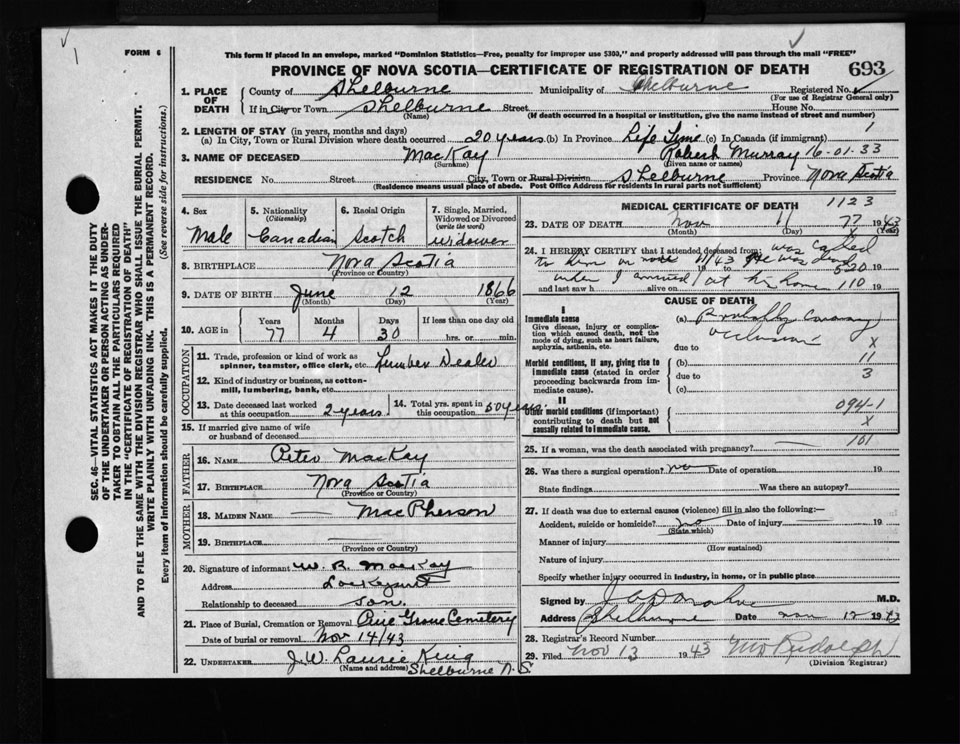 FORM 6
This form if placed in an envelope, marked "Dominion Statistics—Free, penalty for improper use $300," and properly addressed will pass through the mail "FREE"
PROVINCE OF NOVA SCOTIA—CERTIFICATE OF REGISTRATION OF DEATH 693
SEC. 46—VITAL STATISTICS ACT MAKES IT THE DUTY
OF THE UNDERTAKER OR PERSON ACTING AS UNDER-
TAKER TO OBTAIN ALL THE PARTICULARS REQUIRED
IN THE "CERTIFICATE OF REGISTRATION OF DEATH"
AND TO FILE THE SAME WITH THE DIVISION REGISTRAR WHO SHALL ISSUE THE BURIAL PERMIT.
WRITE PLAINLY WITH UNFADING INK. THIS IS A PERMANENT RECORD.
Every item of Information should be carefully supplied. (See reverse side for instructions.)
1. PLACE OF DEATH
County of Shelburne Municipality of Shelburne Registered No.
(For use of Registrar General only)
If in City or Town Shelburne Street House No.
(Name) (If death occurred in a hospital or institution, give the name instead of street and number)
2. LENGTH OF STAY (in years, months and days)
(a) In City, Town or Rural Division where death occurred 20 years (b) In Province Life Time (c) In Canada (if immigrant) 1
3. NAME OF DECEASED MacKay Robert Murray 16-01-33
(Surname) (Given name or names)
RESIDENCE No. Street City, Town or Rural Division Shelburne Province Nova Scotia
(Residence means usual place of abode. Post Office Address for residents in rural parts not sufficient)
4. Sex
Male
5. Nationality
(Citizenship)
Canadian
6. Racial Origin
Scotch
7. Single, Married, Widowed or Divorced
(write the word)
Widower
8. BIRTHPLACE Nova Scotia
(Province or Country)
9. DATE OF BIRTH June 12 1866
(Month) (Day) (Year)
10. AGE in Years Months Days If less than one day old
77 4 30 hrs. or min.
OCCUPATION
11. Trade, profession or kind of work as spinner, teamster, office clerk, etc. Lumber Dealer
12. Kind of industry or business, as cotton-mill, lumbering, bank, etc.
13. Date deceased last worked at this occupation 2 years
14. Total yrs. spent in this occupation 50 years
15. If married give name of wife or husband of deceased
FATHER
16. NAME Peter MacKay
17. BIRTHPLACE Nova Scotia
(Province or Country)
MOTHER
18. MAIDEN NAME — MacPherson
19. BIRTHPLACE
(Province or Country)
20. Signature of informant W. R. MacKay
Address Lockeport
Relationship to deceased son.
21. Place of Burial, Cremation or Removal Pine Grove Cemetery
Date of burial or removal Nov 14/43
22. UNDERTAKER J. W. Laurie King
(Name and address) Shelburne N.S.
MEDICAL CERTIFICATE OF DEATH 1123
23. DATE OF DEATH Nov 11 77 1943
(Month) (Day) (Year)
24. I HEREBY CERTIFY that I attended deceased from: was called
to him on Nov 11/43 He was dead 520 19
when I arrived at his home 110 19
and last saw h alive on
CAUSE OF DEATH
I
Immediate cause
Give disease, injury or complication which caused death, not the mode of dying, such as heart failure, asphyxia, asthenia, etc.
(a) Probably Coronary
occlusion X
due to
Morbid conditions, if any, giving rise to immediate cause (stated in order proceeding backwards from immediate cause).
(b) 11
due to 3
(c)
II
Other morbid conditions (if important) contributing to death but not causally related to immediate cause.
094-1
X
25. If a woman, was the death associated with pregnancy? 101
26. Was there a surgical operation? no Date of operation 19
State findings Was there an autopsy?
27. If death was due to external causes (violence) fill in also the following:—
Accident, suicide or homicide? no Date of injury 19
(State which)
Manner of injury
(How sustained)
Nature of injury
Specify whether injury occurred in industry, in home, or in public place
Signed by M.D.
Address Shelburne Date Nov 12 1943
28. Registrar's Record Number
29. Filed Nov 13 1943 Rudolph
(Division Registrar)